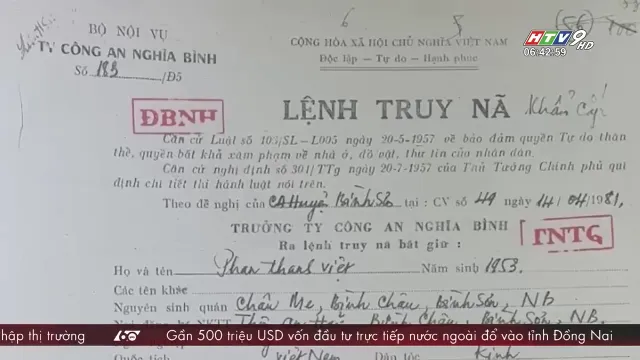 BỘ NỘI VỤ
TY CÔNG AN NGHĨA BÌNH
Số 183/Đ5
6
8
CỘNG HÒA XÃ HỘI CHỦ NGHĨA VIỆT NAM
Độc lập - Tự do - Hạnh phúc
HTV9 HD
06:42:59
ĐBNH
LỆNH TRUY NÃ Khẩn cấp
Căn cứ Luật số 103/SL-L005 ngày 20-5-1957 về bảo đảm quyền Tự do thân
thể, quyền bất khả xâm phạm về nhà ở, đồ vật, thư tín của nhân dân.
Căn cứ nghị định số 301/TTg ngày 20-7-1957 của Thủ Tướng Chính phủ qui
định chi tiết thi hành luật nói trên.
Theo đề nghị của CA Huyện Bình Sơn tại : CV số 49 ngày 14/04/1981.
TRƯỞNG TY CÔNG AN NGHĨA BÌNH
Ra lệnh truy nã bắt giữ :
TNTG
Họ và tên Phan thanh việt Năm sinh 1953.
Các tên khác
Nguyên sinh quán Châu Me, Bình Châu, Bình Sơn, NB
Bình Châu, Bình Sơn, NB.
Quốc tịch Việt Nam Dân tộc Kinh
hập thị trường
60 Gần 500 triệu USD vốn đầu tư trực tiếp nước ngoài đổ vào tỉnh Đồng Nai